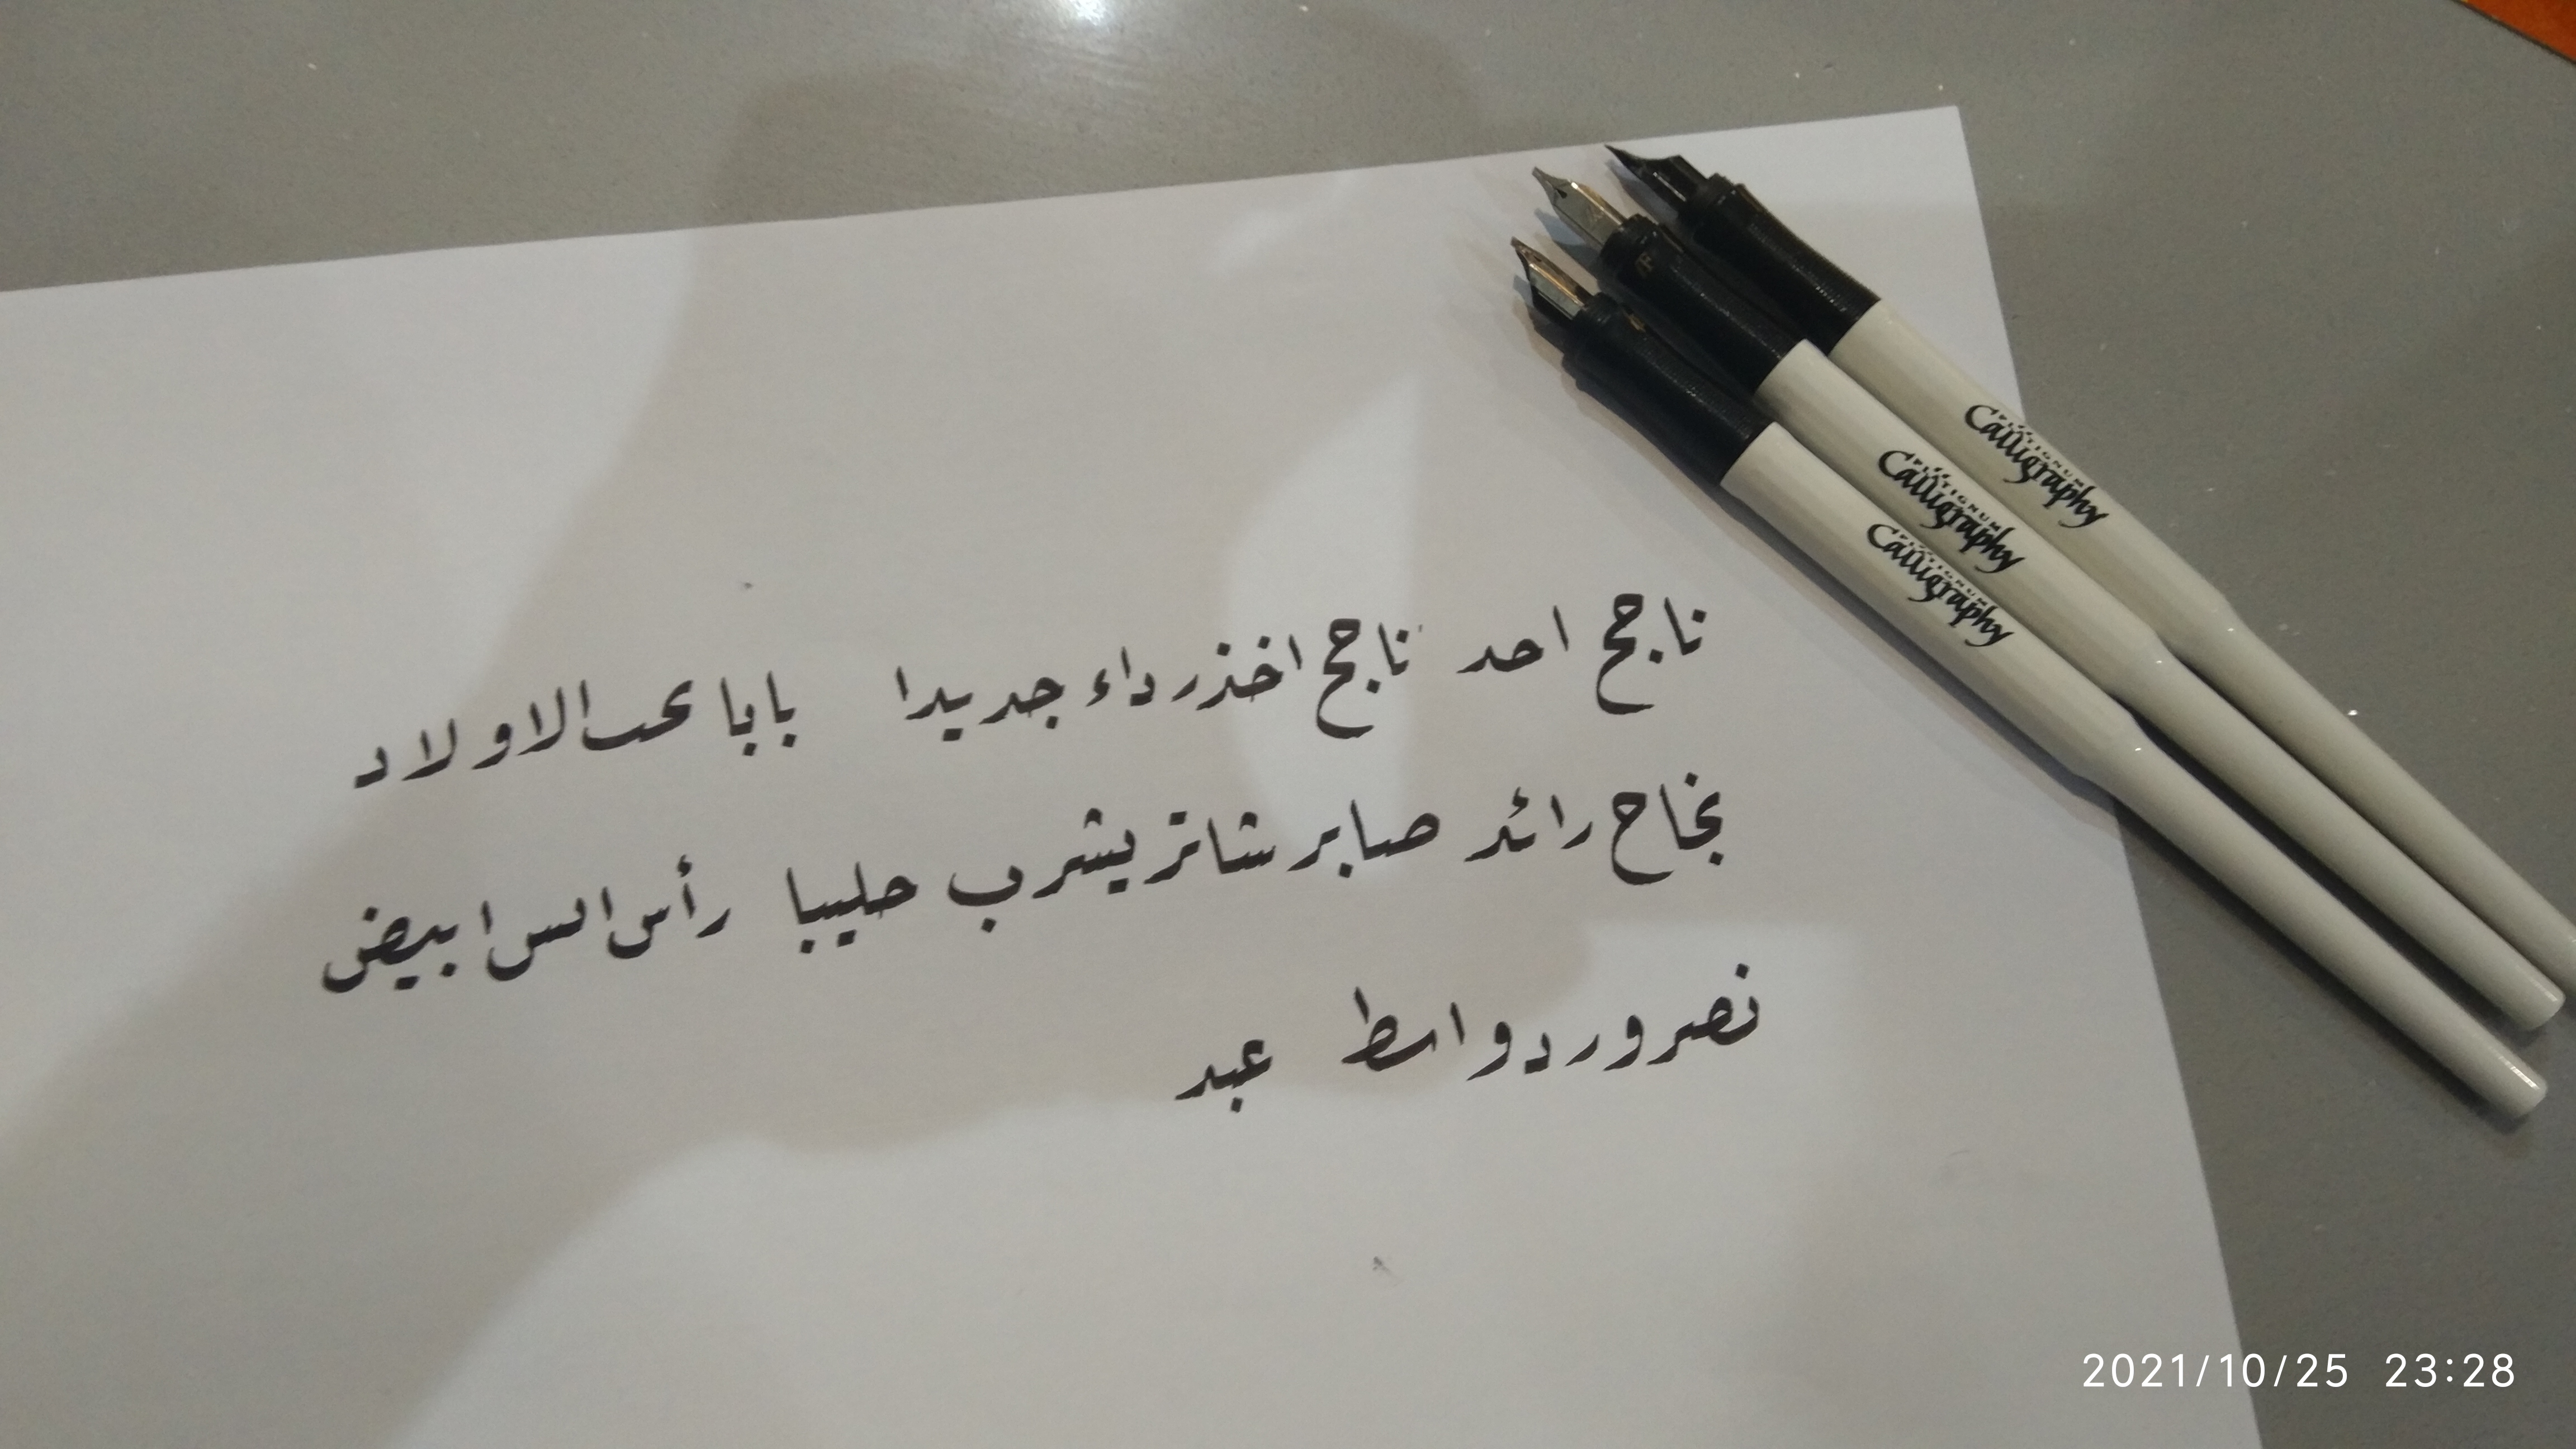 ناجح احد ناجح اخذ رداء جديدا بابا يحب الاولاد
نجاح رائد صابر شاتر يشرب حليبا رأس السن ابيض
نصر ورد واسط عبد
PLATIGNUM
Calligraphy
PLATIGNUM
Calligraphy
PLATIGNUM
Calligraphy
2021/10/25 23:28